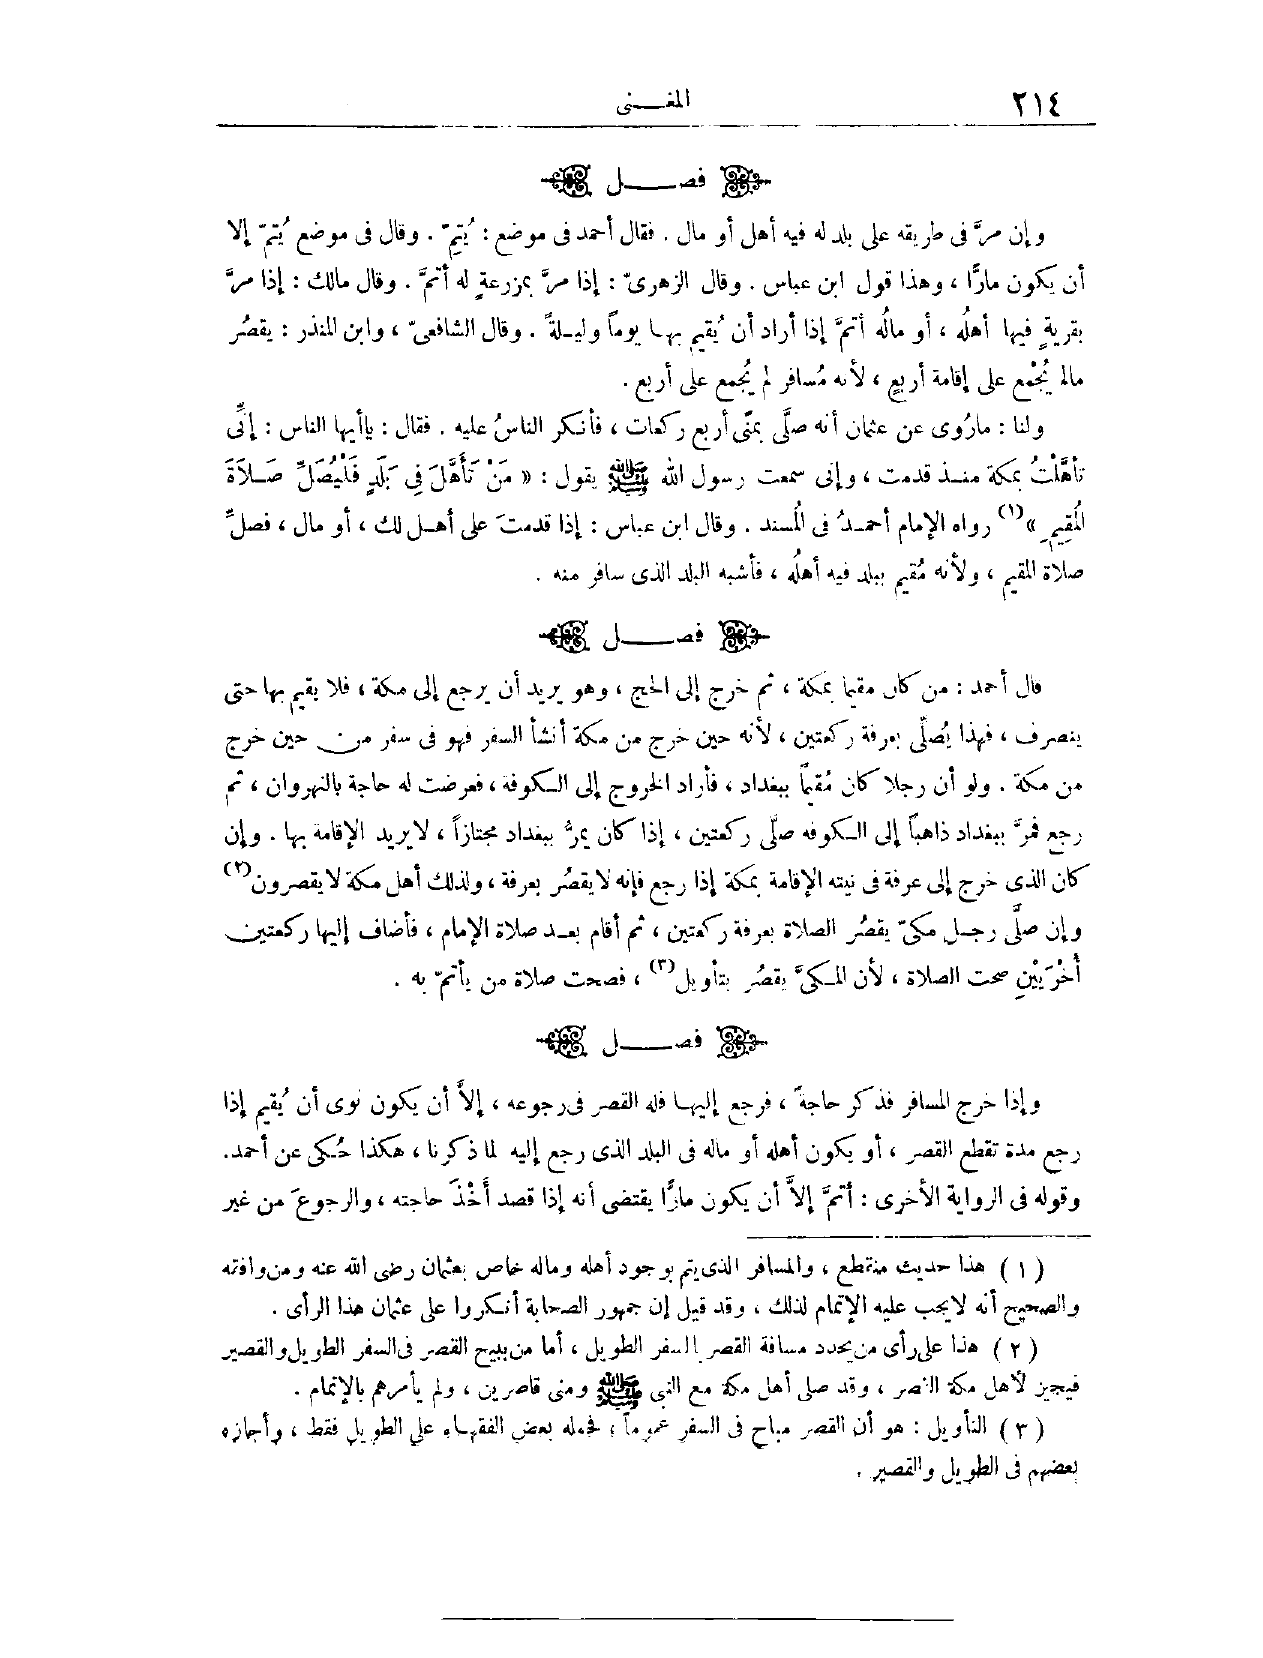 ٢١٤
المغــنى
فصــــل
وإن مرَّ فى طريقه على بلد له فيه أهل أو مال . فقال أحمد فى موضع : يُتِم . وقال فى موضع يُتمّ إلا
أن يكون مارًّا ، وهذا قول ابن عباس . وقال الزهرىّ : إذا مرَّ بمزرعةٍ له أتمَّ . وقال مالك : إذا مرَّ
بقريةٍ فيها أهلُه ، أو مالُه أتمَّ إذا أراد أن يُقيم بهـا يوماً وليـلةً . وقال الشافعىّ ، وابن المنذر : يقصُر
مالم يُجْمع على إقامة أربعٍ ، لأنه مُسافر لم يُجمع على أربع .
ولنا : مارُوى عن عثمان أنه صلَّى بمنًى أربع ركعات ، فأنكر الناسُ عليه . فقال : ياأيها الناس : إنِّى
تأهَّلْتُ بمكة منـذ قدمت ، وإنى سمعت رسول الله ﷺ يقول : « مَنْ تَأَهَّلَ فِى بَلَدٍ فَلْيُصَلِّ صَـلاَةَ
المُقِيمِ »(١) رواه الإمام أحمـدُ فى المُسند . وقال ابن عباس : إذا قدمتَ على أهـل لك ، أو مال ، فصلِّ
صلاة المقيم ، ولأنه مُقيم ببلد فيه أهلُه ، فأشبه البلد الذى سافر منه .
فصــــل
قال أحمد : من كان مقيما بمكة ، ثم خرج إلى الحج ، وهو يريد أن يرجع إلى مكة ، فلا يقيم بها حتى
ينصرف ، فهذا يُصلِّى بعرفة ركعتين ، لأنه حين خرج من مكة أنشأ السفر فهو فى سفر من حين خرج
من مكة . ولو أن رجلا كان مُقيماً ببغداد ، فأراد الخروج إلى الـكوفة ، فعرضت له حاجة بالنهروان ، ثم
رجع فمرَّ ببغداد ذاهباً إلى الـكوفه صلَّى ركعتين ، إذا كان يمرُّ ببغداد مجتازاً ، لايريد الإقامة بها . وإن
كان الذى خرج إلى عرفة فى نيته الإقامة بمكة إذا رجع فإنه لايقصُر بعرفة ، ولذلك أهل مكة لايقصرون(٢)
وإن صلَّى رجـل مكىّ يقصُر الصلاة بعرفة ركعتين ، ثم أقام بعـد صلاة الإمام ، فأضاف إليها ركعتين
أُخْرَيَيْنِ صحت الصلاة ، لأن المـكىَّ يقصُر بتأويل(٣) ، فصحت صلاة من يأتمّ به .
فصــــل
وإذا خرج المسافر فذكر حاجةً ، فرجع إليهـا فله القصر فى رجوعه ، إلاَّ أن يكون نوى أن يُقيم إذا
رجع مدة تقطع القصر ، أو يكون أهله أو ماله فى البلد الذى رجع إليه لما ذكرنا ، هكذا حُكى عن أحمد.
وقوله فى الرواية الأخرى : أتمَّ إلاَّ أن يكون مارًّا يقتضى أنه إذا قصد أَخْذَ حاجته ، والرجوعَ من غير
( ١ ) هذا حديث منقطع ، والمسافر الذى يتم بوجود أهله وماله خاص بعثمان رضى الله عنه ومن وافقه
والصحيح أنه لايجب عليه الإتمام لذلك ، وقد قيل إن جمهور الصحابة أنكروا على عثمان هذا الرأى .
( ٢ ) هذا على رأى من يحدد مسافة القصر بالسفر الطويل ، أما من يبيح القصر فى السفر الطويل والقصير
فيجيز لأهل مكة القصر ، وقد صلى أهل مكة مع النبى ﷺ ومنى قاصرين ، ولم يأمرهم بالإتمام .
( ٣ ) التأويل : هو أن القصر مباح فى السفر عموماً ؛ فحمله بعض الفقهاء على الطويل فقط ، وأجازه
بعضهم فى الطويل والقصير .